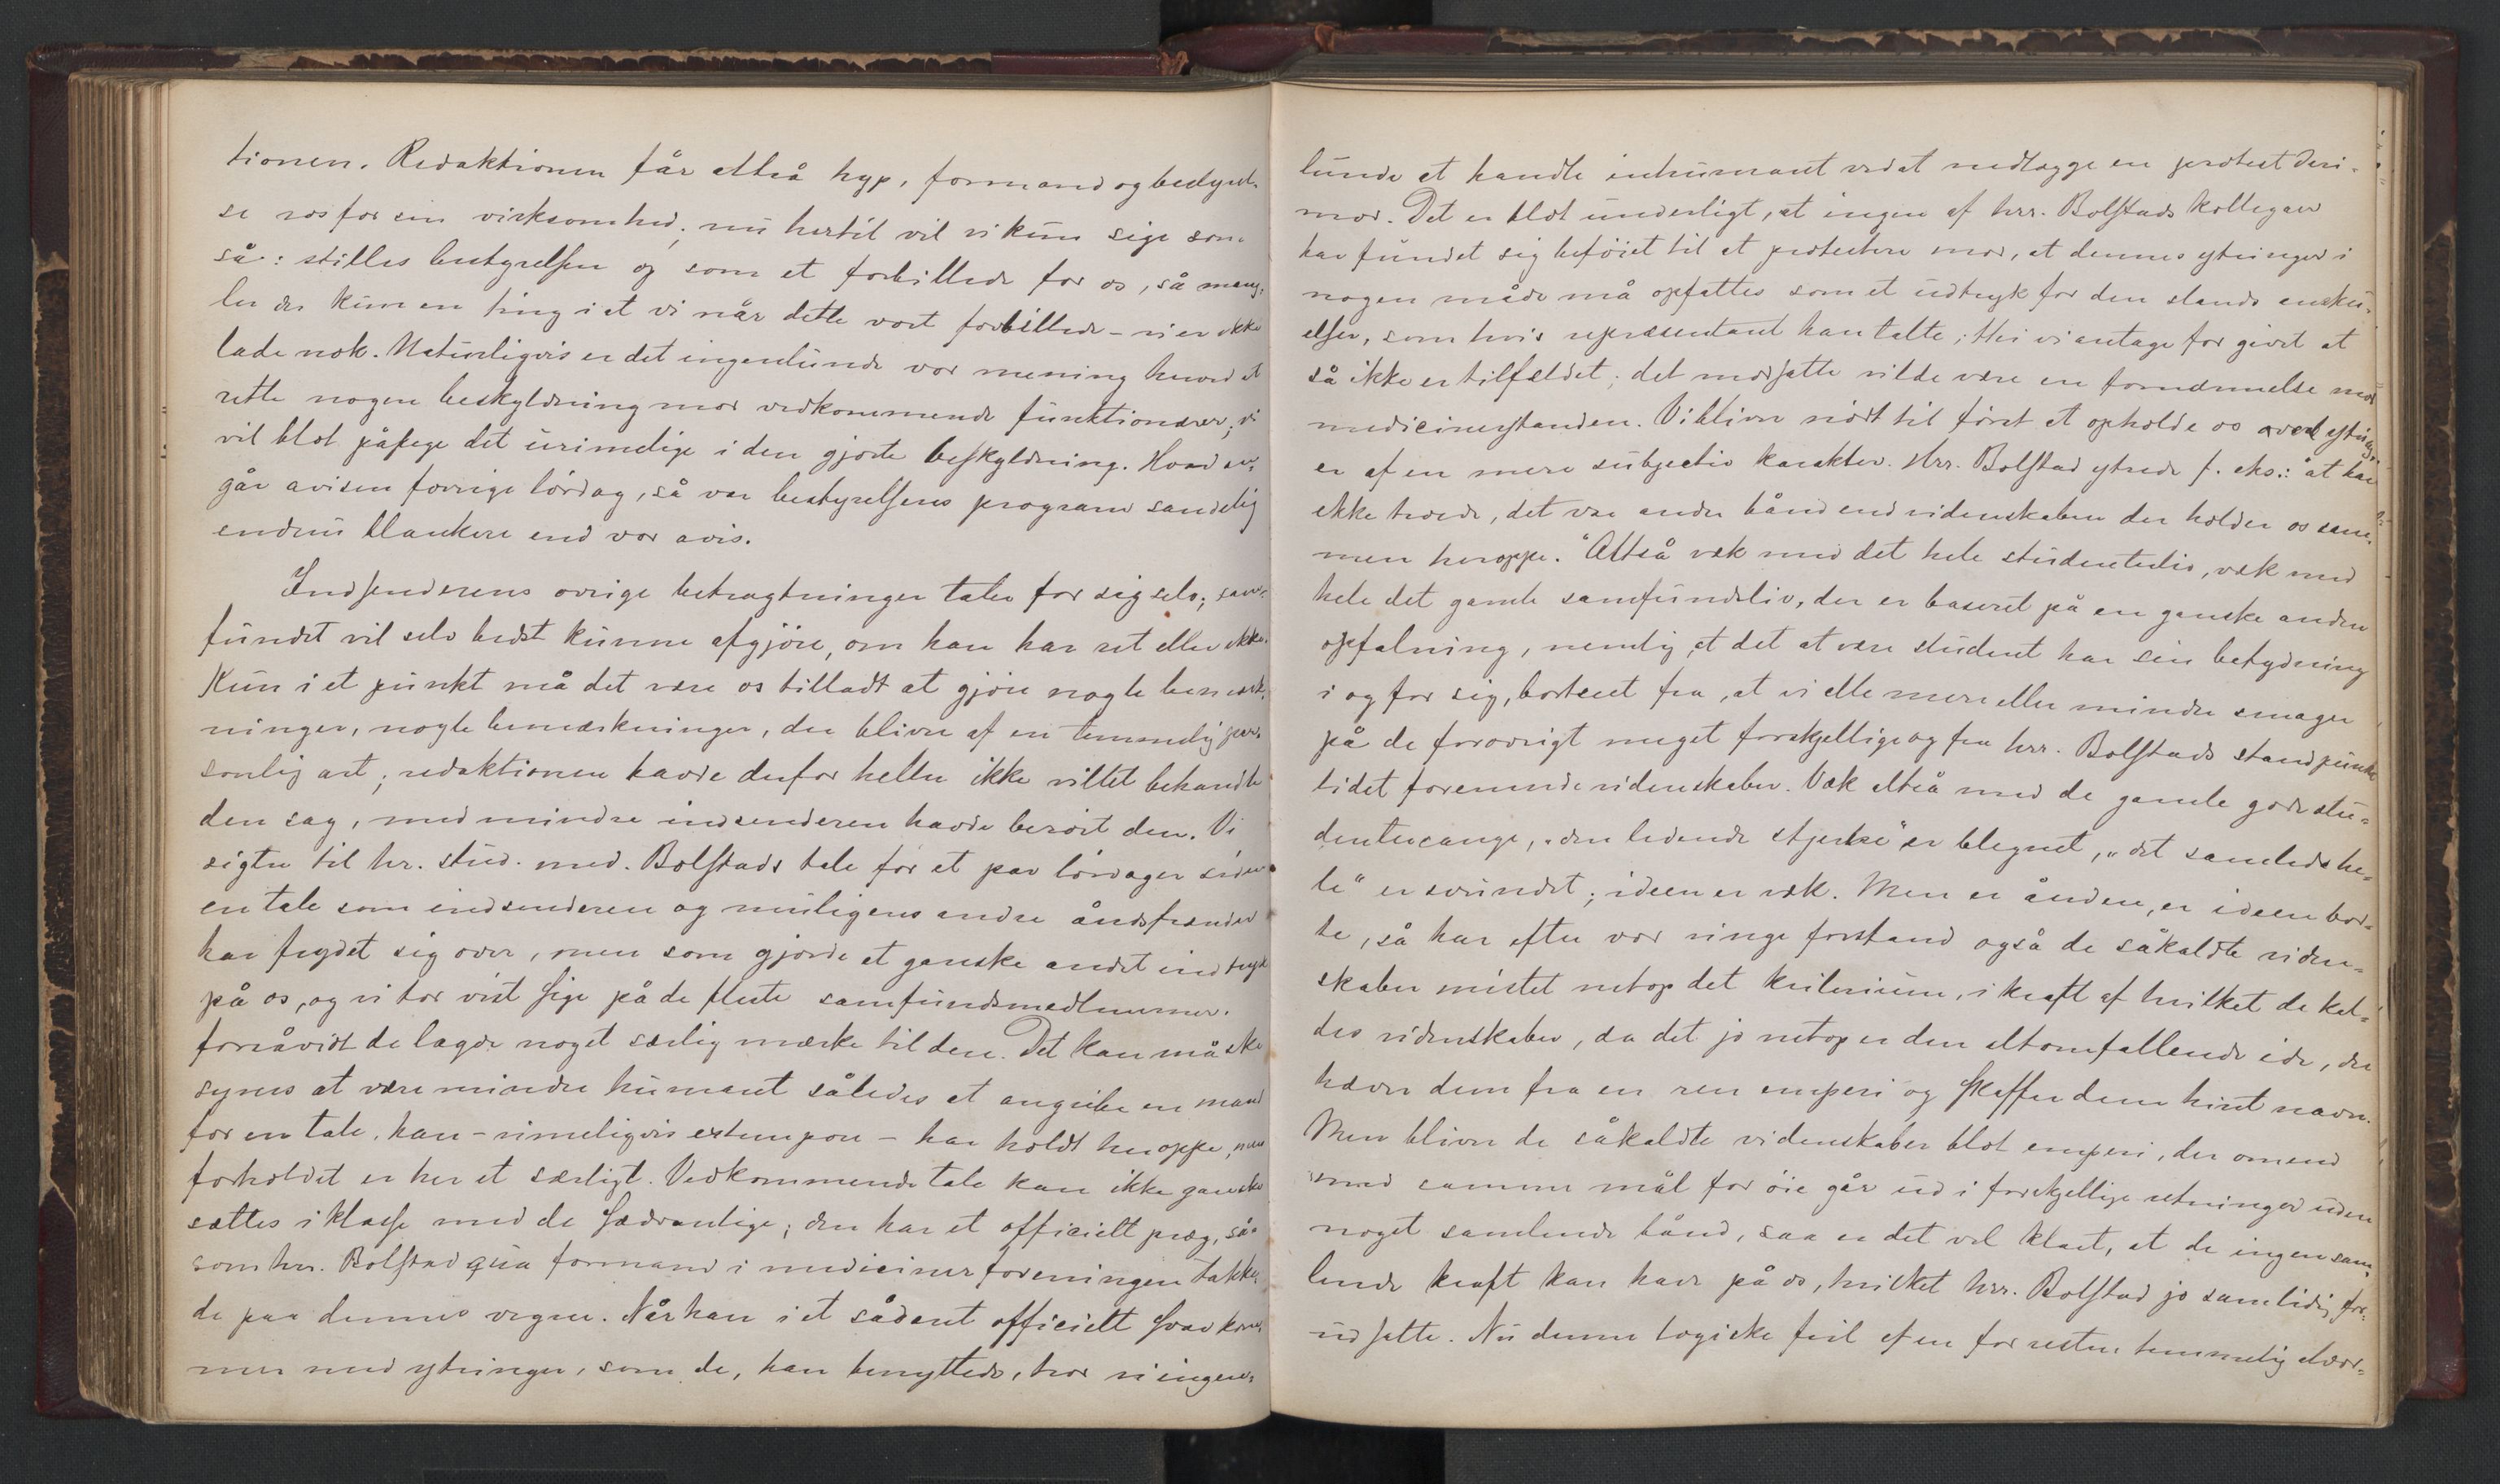 tionen. Redaktionen får altså hyp, formand og bestyrel-
se ros for sin virksomhed; nu hertil vil vi kun sige som
så: stilles bestyrelsen og som et forbillede for os, så mang-
ler der kun en ting i at vi når dette vort forbillede - vi er ikke
lade nok. Naturligvis er det ingenlunde vor mening herved at
rette nogen beskyldning mod vedkommende funktionærer; vi
vil blot påpege det urimelige i den gjorte beskyldning. Hvad an-
går avisen forrige lördag, så var bestyrelsens program sandelig
endnu blankere end vor avis.
Indsenderens övrige betragtninger taler for sig selv; sam-
fundet vil selv bedst kunne afgjöre, om han har ret eller ikke.
Kun i et punkt må det være os tilladt at gjöre nogle bemærk-
ninger, nogle bemærkninger, der bliver af en temmelig per-
sonlig art; redaktionen havde derfor heller ikke villet behandle
den sag, med mindre indsenderen havde berört den. Vi
sigter til hr. stud. med. Bolstads tale for et par lördager siden
en tale som indsenderen og muligens andre åndsfrænder
har frydet sig over, men som gjorde et ganske andet indtryk
på os, og vi tör vist sige på de fleste samfundsmedlemmer.
forsåvidt de lagde noget særlig mærke til den. Det kan måske
synes at være mindre humant således at angribe en mand
for en tale, han - rimeligvis extempore - har holdt heroppe, men
forholdet er her et særligt. Vedkommende tale kan ikke ganske
sættes i klasse med de sædvanlige; den har et officielt præg, så-
som hr. Bolstad qua formand i medicinerforeningen takke-
de paa dennes vegne. Når han i et sådant officielt svar kom-
mer med ytringer, som de, han benyttede, tror vi ingen-
lunde at handle inhumant ved at nedlægge en protest deri-
mod. Det er blot underligt, at ingen af hrr. Bolstads kollegaer
har fundet sig beföiet til at protestere mod, at dennes ytringer i
nogen måde må opfattes som et udtryk for den stands anskü-
elser, som hvis repræsentant han talte; thi vi antage for givet at
så ikke er tilfældet; det modsatte vilde være en fornærmelse mod
medicinerstanden. Vi bliver nödt til först at opholde os ved ytring-
er af en mere subjectiv karakter. Hrr. Bolstad ytrede f. eks.: "at han
ikke troede, det var andre bånd end videnskaben der holder os sam-
men heroppe." Altså væk med det hele studenterliv, væk med
hele det gamle samfundsliv, der er baseret på en ganske anden
opfatning, nemlig, at det at være student har sin betydning
i og for sig, bortseet fra, at vi alle mere eller mindre smager
på de forövrigt meget forskjellige og fra hrr. Bolstads standpunkt
lidet forenende videnskaber. Væk altså med de gamle gode stu-
dentersange, "den ledende stjerne" er blegnet, "det samlede he-
le" er svundet; ideen er væk. Men er ånden, er ideen bor-
te, så har efter vor ringe forstand også de såkaldte viden-
skaber mistet netop det kriterium, i kraft af hvilket de kal-
des videnskaber, da det jo netop er den altomfattende ide, der
hæver dem fra en ren emperi og skaffer dem hint navn.
Men bliver de såkaldte videnskaber blot emperi, der omend
med samme mål for öie går ud i forskjellige retninger uden
noget samlende bånd, saa er det vel klart, at de ingen sam-
lende kraft kan have på os, hvilket hrr. Bolstad jo samtidig for-
udsatte. Nu denne logiske feil af en forresten temmelig alvor-